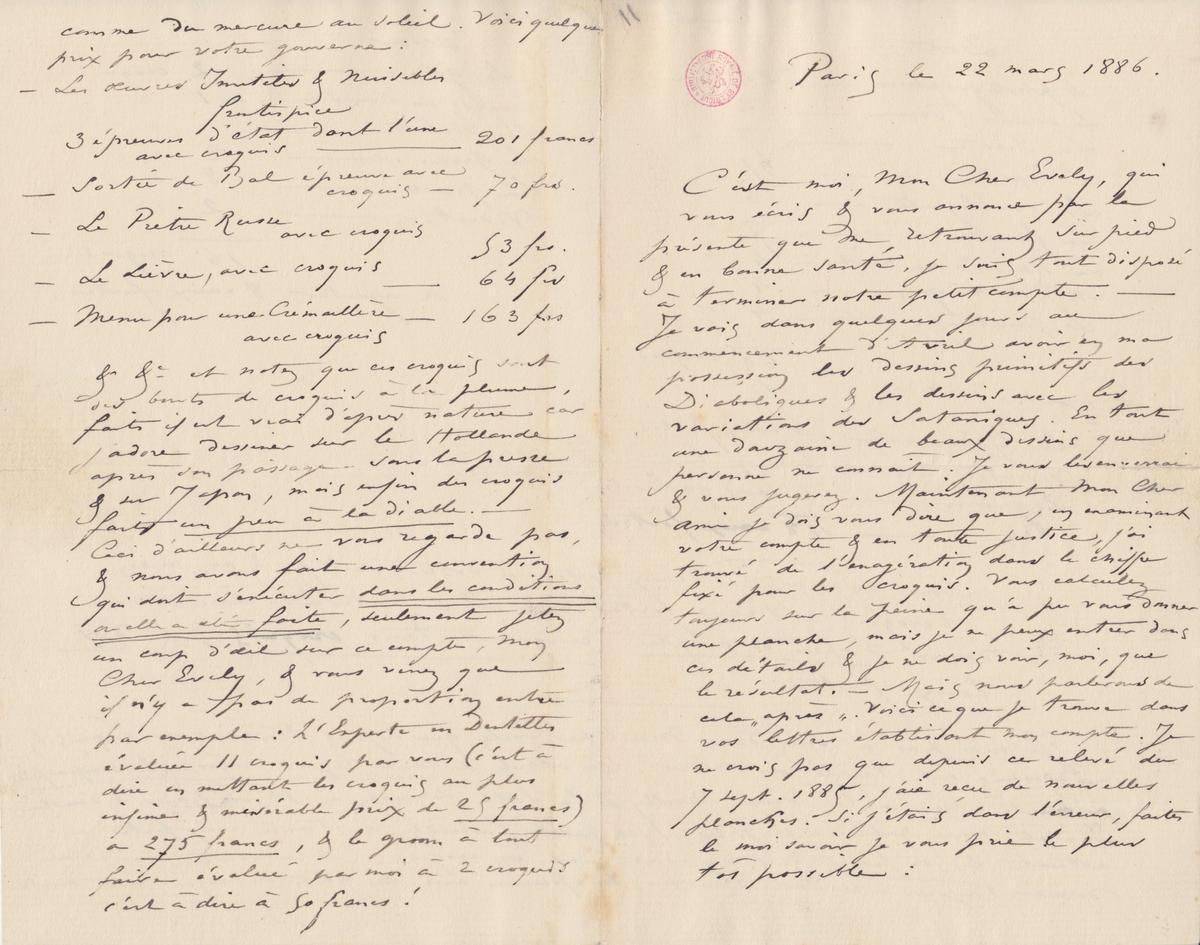 comme du mercure au soleil. Voici quelques
prix pour votre gouverne :
— Les œuvres Inutiles & Nuisibles
frontispice
3 épreuves d'état dont l'une
avec croquis — 201 francs
— Sortie de Bal épreuve avec
croquis — 70 frs.
— Le Prêtre Russe
avec croquis
53 frs.
— Le Lièvre, avec croquis — 64 frs
— Menu pour une Crémaillère — 163 frs
avec croquis
&a &a et notez que ces croquis sont
des bouts de croquis à la plume,
faits il est vrai d'après nature car
j'adore dessiner sur le Hollande
après son passage sous la presse
& sur Japon, mais enfin des croquis
faits un peu à la diable. —
Ceci d'ailleurs ne vous regarde pas,
& nous avons fait une convention
qui doit s'exécuter dans les conditions
où elle a été faite, seulement jetez
un coup d'œil sur ce compte, mon
Cher Evely, & vous verrez que
il n'y a pas de proportion entre
par exemple : L'Experte en Dentelles
évaluée 11 croquis par vous (c'est à
dire en mettant les croquis au plus
infime & misérable prix de 25 francs)
à 275 francs, & le groom à tout
faire évalué par moi à 2 croquis
c'est à dire à 50 francs !
11
BIBLIOTHEQUE ROYALE DE BELGIQUE
Paris le 22 mars 1886.
C'est moi, Mon Cher Evely, qui
vous écris & vous annonce par la
présente que me retrouvant sur pied
& en bonne santé, je suis tout disposé
à terminer notre petit compte. —
Je vais dans quelques jours au
commencement d'Avril avoir en ma
possession les dessins primitifs des
Diaboliques & les dessins avec les
variations des Sataniques. En tout
une douzaine de beaux dessins que
personne ne connait. Je vous les enverrai
& vous jugerez. Maintenant Mon Cher
Ami je dois vous dire que, en examinant
votre compte & en toute justice, j'ai
trouvé de l'exagération dans le chiffre
fixé pour les croquis. Vous calculez
toujours sur la peine qu'a pu vous donner
une planche, mais je ne peux entrer dans
ces détails & je ne dois voir, moi, que
le résultat. — Mais nous parlerons de
cela „après„. Voici ce que je trouve dans
vos lettres établissant mon compte. Je
ne crois pas que depuis ce relevé du
7 sept. 1885, j'aie reçu de nouvelles
planches. Si j'étais dans l'erreur, faites
le moi savoir je vous prie le plus
tôt possible :